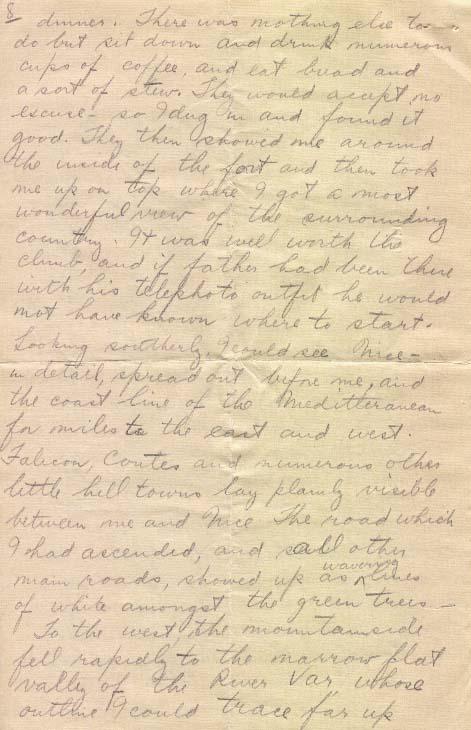 8
dinner. There was nothing else to
do but sit down and drink numerous
cups of coffee, and eat bread and
a sort of stew. They would accept no
excuse - so I dug in and found it
good. They then showed me around
the inside of the fort and then took
me up on top where I got a most
wonderful view of the surrounding
country. It was well worth the
climb, and if father had been there
with his telephoto outfit he would
not have known where to start.
Looking southerly, I could see Nice -
in detail, spread out before me, and
the coast line of the Mediterranean
for miles to the east and west.
Falicon, Contes and numerous other
little hill towns lay plainly visible
between me and Nice The road which
I had ascended, and all other
wavering
main roads, showed up as lines
of white amongst the green trees -
To the west the mountainside
fell rapidly to the narrow flat
vally of the River Var whose
outline I could trace far up